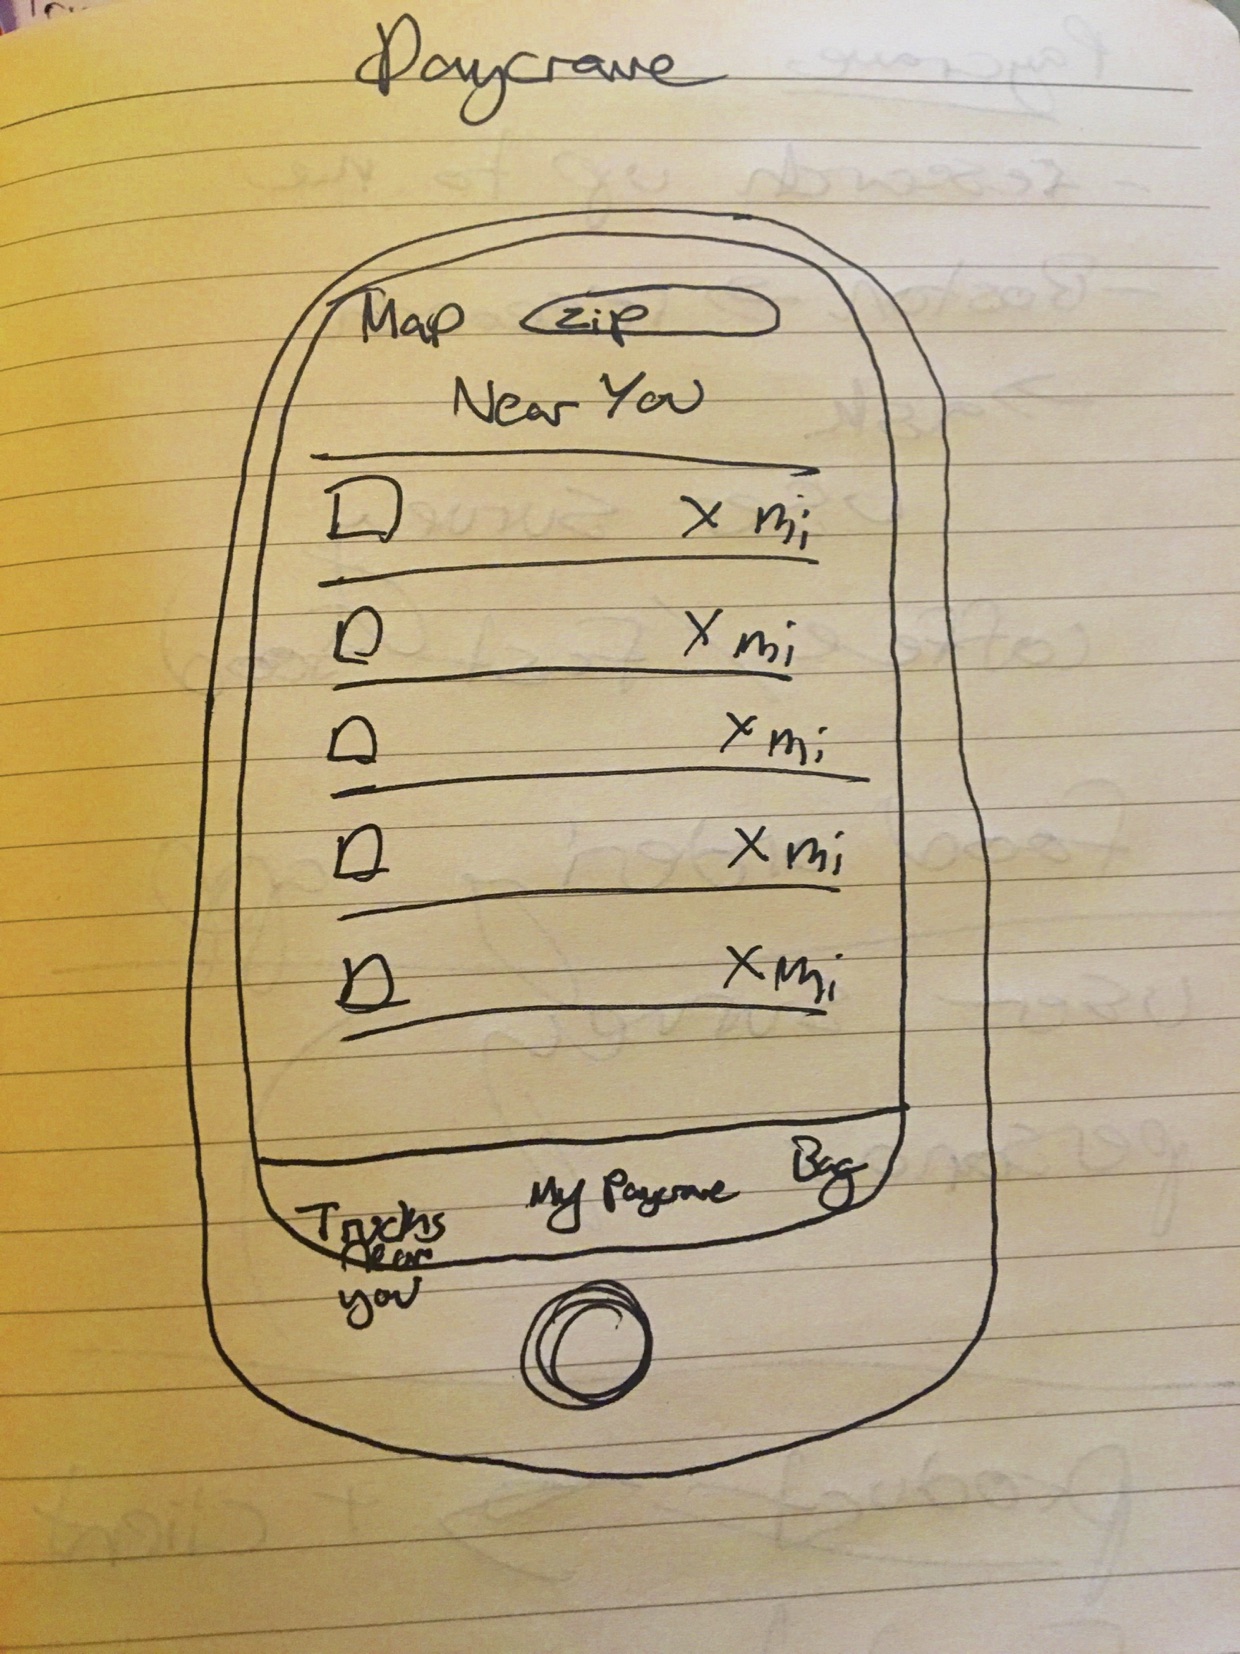 Paycrave
Map zip
Near You
X mi
X mi
X mi
X mi
X mi
Trucks near you
My Paycrave
Bag